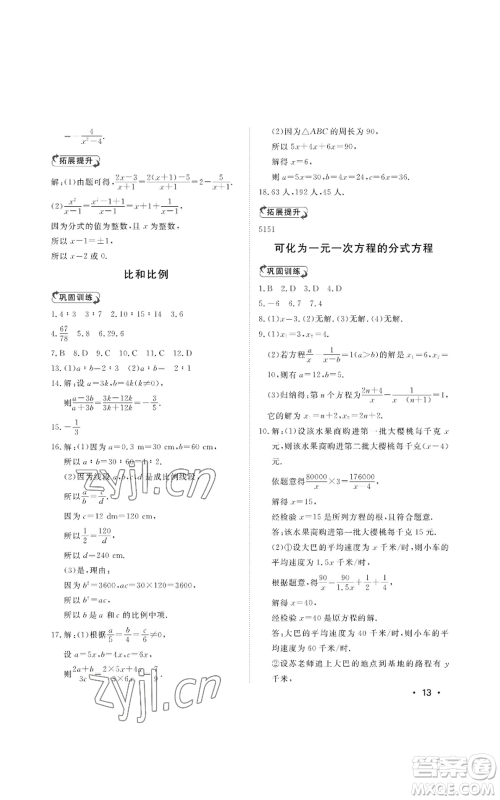 −4/(x²−4).
拓展提升
解：(1)由题可得，(2x−3)/(x+1)=(2(x+1)−5)/(x+1)=2−5/(x+1)
(2)x²/(x−1)=(x²−1+1)/(x−1)=x+1+1/(x−1)
因为分式的值为整数，
所以 x−1=±1，
所以 x−2.0.
比和比例
巩固训练
1.4∶3 3∶7
4.67/78 5.8 6.29,6
7.B 8.D 9.C 10.C 11.C 12.D
13.(1)a∶b−2∶3 (2)a∶b−4∶3
14.解：设 a=3k，b=4k(k≠0)，
15.−
16.解：(1)因为 a=0.3 m=30 cm，b=60 cm，
所以 a∶b=30∶60=1∶2.
(2)因为线段 是成比例线段
所以 a/b=c/d.
因为 c=12 dm=120 cm，
所以 1/2=120/d
所以 d=240 cm.
(3)是，理由：
因为 b²=3600，ac=
所以 b²=ac，
所以 b 是 a 和 c 的比例中项.
17.解：(1)根据 a/5=b/4=c/6
设 a=5x，b=4x，c=6x，
(2)因为△ABC 的周长为 90，
所以 5x+4x+6x=90，
解得 x=6，
则 a=5x=30，b=4x=24，c=6x=36.
18.63 人，42 人，45 人.
拓展提升
5151
可化为一元一次方程的分式方程
巩固训练
1.B 2.D 3.D 4.D
5.−6 7,4
8.(1)x−3. (2)无解. (3)无解. (4)无解.
9.(1)x₁=3，x₂=4.
则 a=12，b=5.
它的解为 x=n+2，x=n+3.
10.解：(1)设该水果商购进第一批大樱桃每千克 x
元，则该水果商购进第二批大樱桃每千克(x−4)
元.
根据题意得 80000/x×3=176000/(x−4)，
解得 x=15.
经检验 x=15 是所列方程的根，
答：该水果商购进第一批大樱桃每千克 15 元.
(2)①设大巴的平均速度为 x 千米/时，则小车的
平均速度为 1.5x 千米/时，
根据题意，得 90/x=90/1.5x+1/2+1/4，
解得 x=40.
经检验 x=40 是原方程的解.
答：大巴的平均速度为 40 千米/时，则小车的平均
速度为 60 千米/时；
②设苏老师追上大巴的地点到基地的路程有 y
千米，
• 13 •
zyjl.cn
zyjl.cn